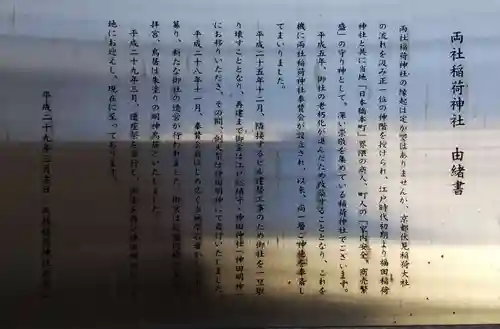 両社稲荷神社 由緒書
両社稲荷神社の縁起は定かではありませんが、京都伏見稲荷大社
の流れを汲み正一位の神階を授けられ、江戸時代初期より福田稲荷
神社と共に当地「日本橋本町」界隈の商人、町人の「家内安全、商売繁
盛」の守り神として、深い崇敬を集めている稲荷神社でございます。
平成五年、御社の老朽化が進んだため改築することとなり、これを
機に両社稲荷神社奉賛会が設立され、以来、尚一層ご神徳を奉斎し
てまいりました。
平成二十五年十二月、隣接するビル建替工事のため御社を一旦取
り壊すこととなり、再建まで御霊は江戸総鎮守、神田神社(神田明神)
にお移りいただき、その間の例大祭は神田明神にて斎行いたしました。
平成二十八年十一月、奉賛会
募り、新たな御社の造営が行われました。御社は
拝宮、鳥居は朱塗りの明神鳥居といたしました。
平成二十九年三月、遷座祭を斎行し、
地にお迎えし、現在に至っております。
平成二十九年三月吉日 両社稲荷神社奉賛会